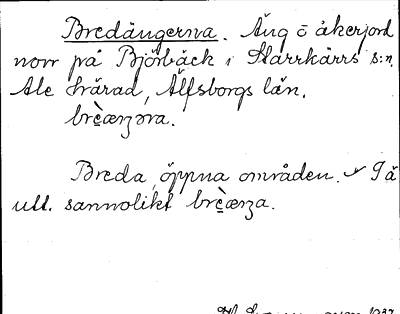 Bredängerna. Äng o åkerjord
norr på Björbäck i Starrkärrs s:n,
Ale härad, Älfsborgs län.
Breda, öppna områden.
utt. sannolikt
1937